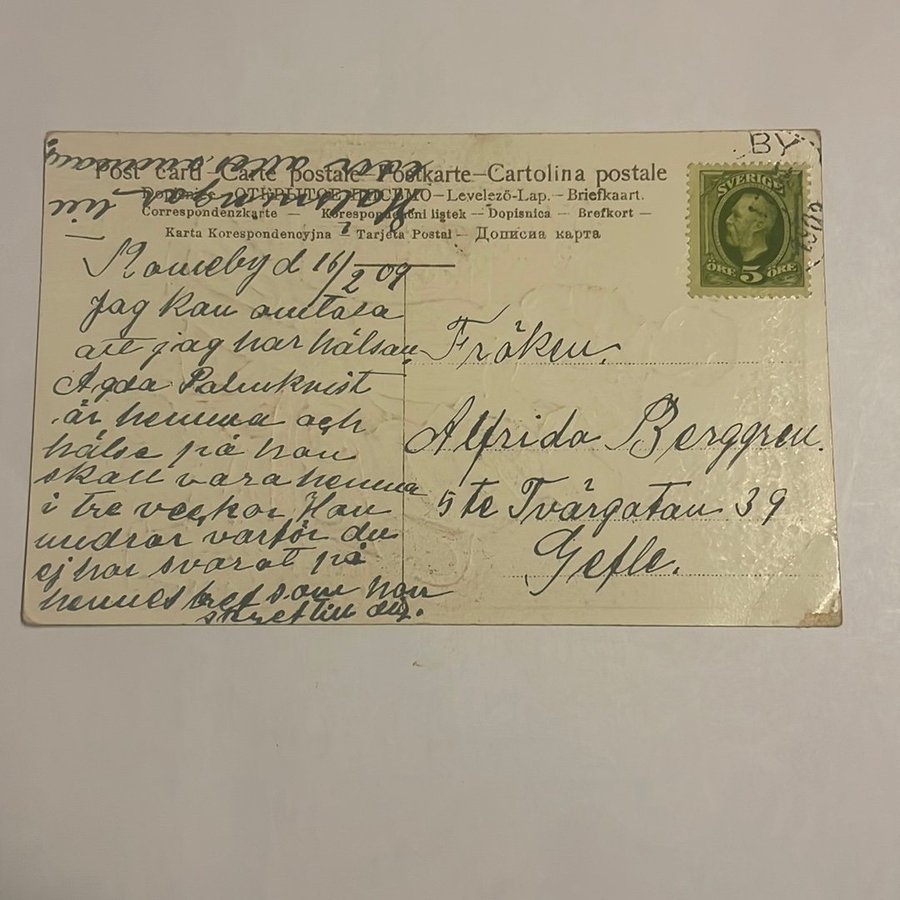 Post card — Carte postale — Postkarte — Cartolina postale
Dopisnice — ОТКРЫТОЕ ПИСЬМО — Levelező-Lap. — Briefkaart.
Correspondenzkarte — Korespondenční listek — Dopisnica — Brefkort —
Karta Korespondencyjna — Tarjeta Postal — Дописна карта
BY
SVERIGE
ÖRE 5 ÖRE
d 16/2 09
Jag kan omtala
att jag har hälsan
Agda Palmkvist
är hemma och
hälse på han
skall vara hemma
i tre veckor Han
undrar varför du
ej har svarat på
hennes bref som han
skref till dig.
Fröken.
Alfrida Berggren.
5te Tvärgatan 39
Gefle.